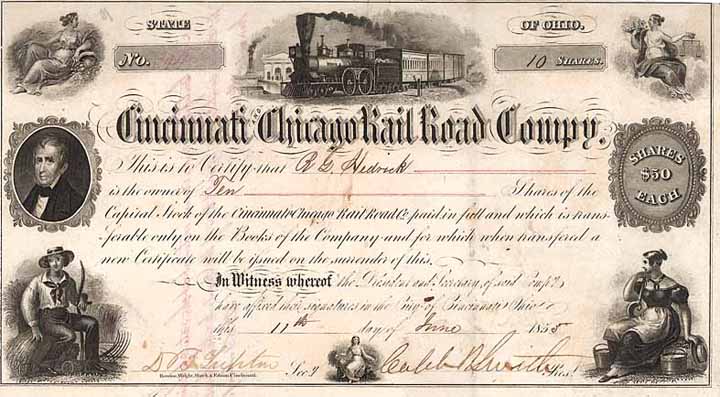 STATE OF OHIO.
No. 10 SHARES.
Cincinnati & Chicago Rail Road Compy.
This is to Certify that R G Hedrick
is the owner of Ten Shares of the
Capital Stock of the Cincinnati & Chicago Rail Road Co. paid in full and which is trans-
ferable only on the Books of the Company and for which when transfered a
new Certificate will be issued on the surrender of this.
SHARES
$50
EACH
In Witness whereof the President and Secretary of said Compy.
have affixed their signatures in the City of Cincinnati Ohio
this 11th day of June 1855
Secy Caleb B Smith Prest